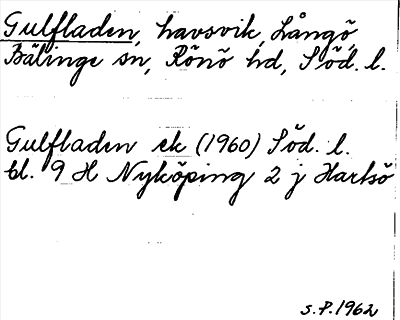 Gulfladen, havsvik, Långö,
Bälinge sn, Rönö hd, Söd. l.
Gulfladen ek (1960) Söd. l.
bl. 9 H Nyköping 2 j Hartsö
S.P. 1962